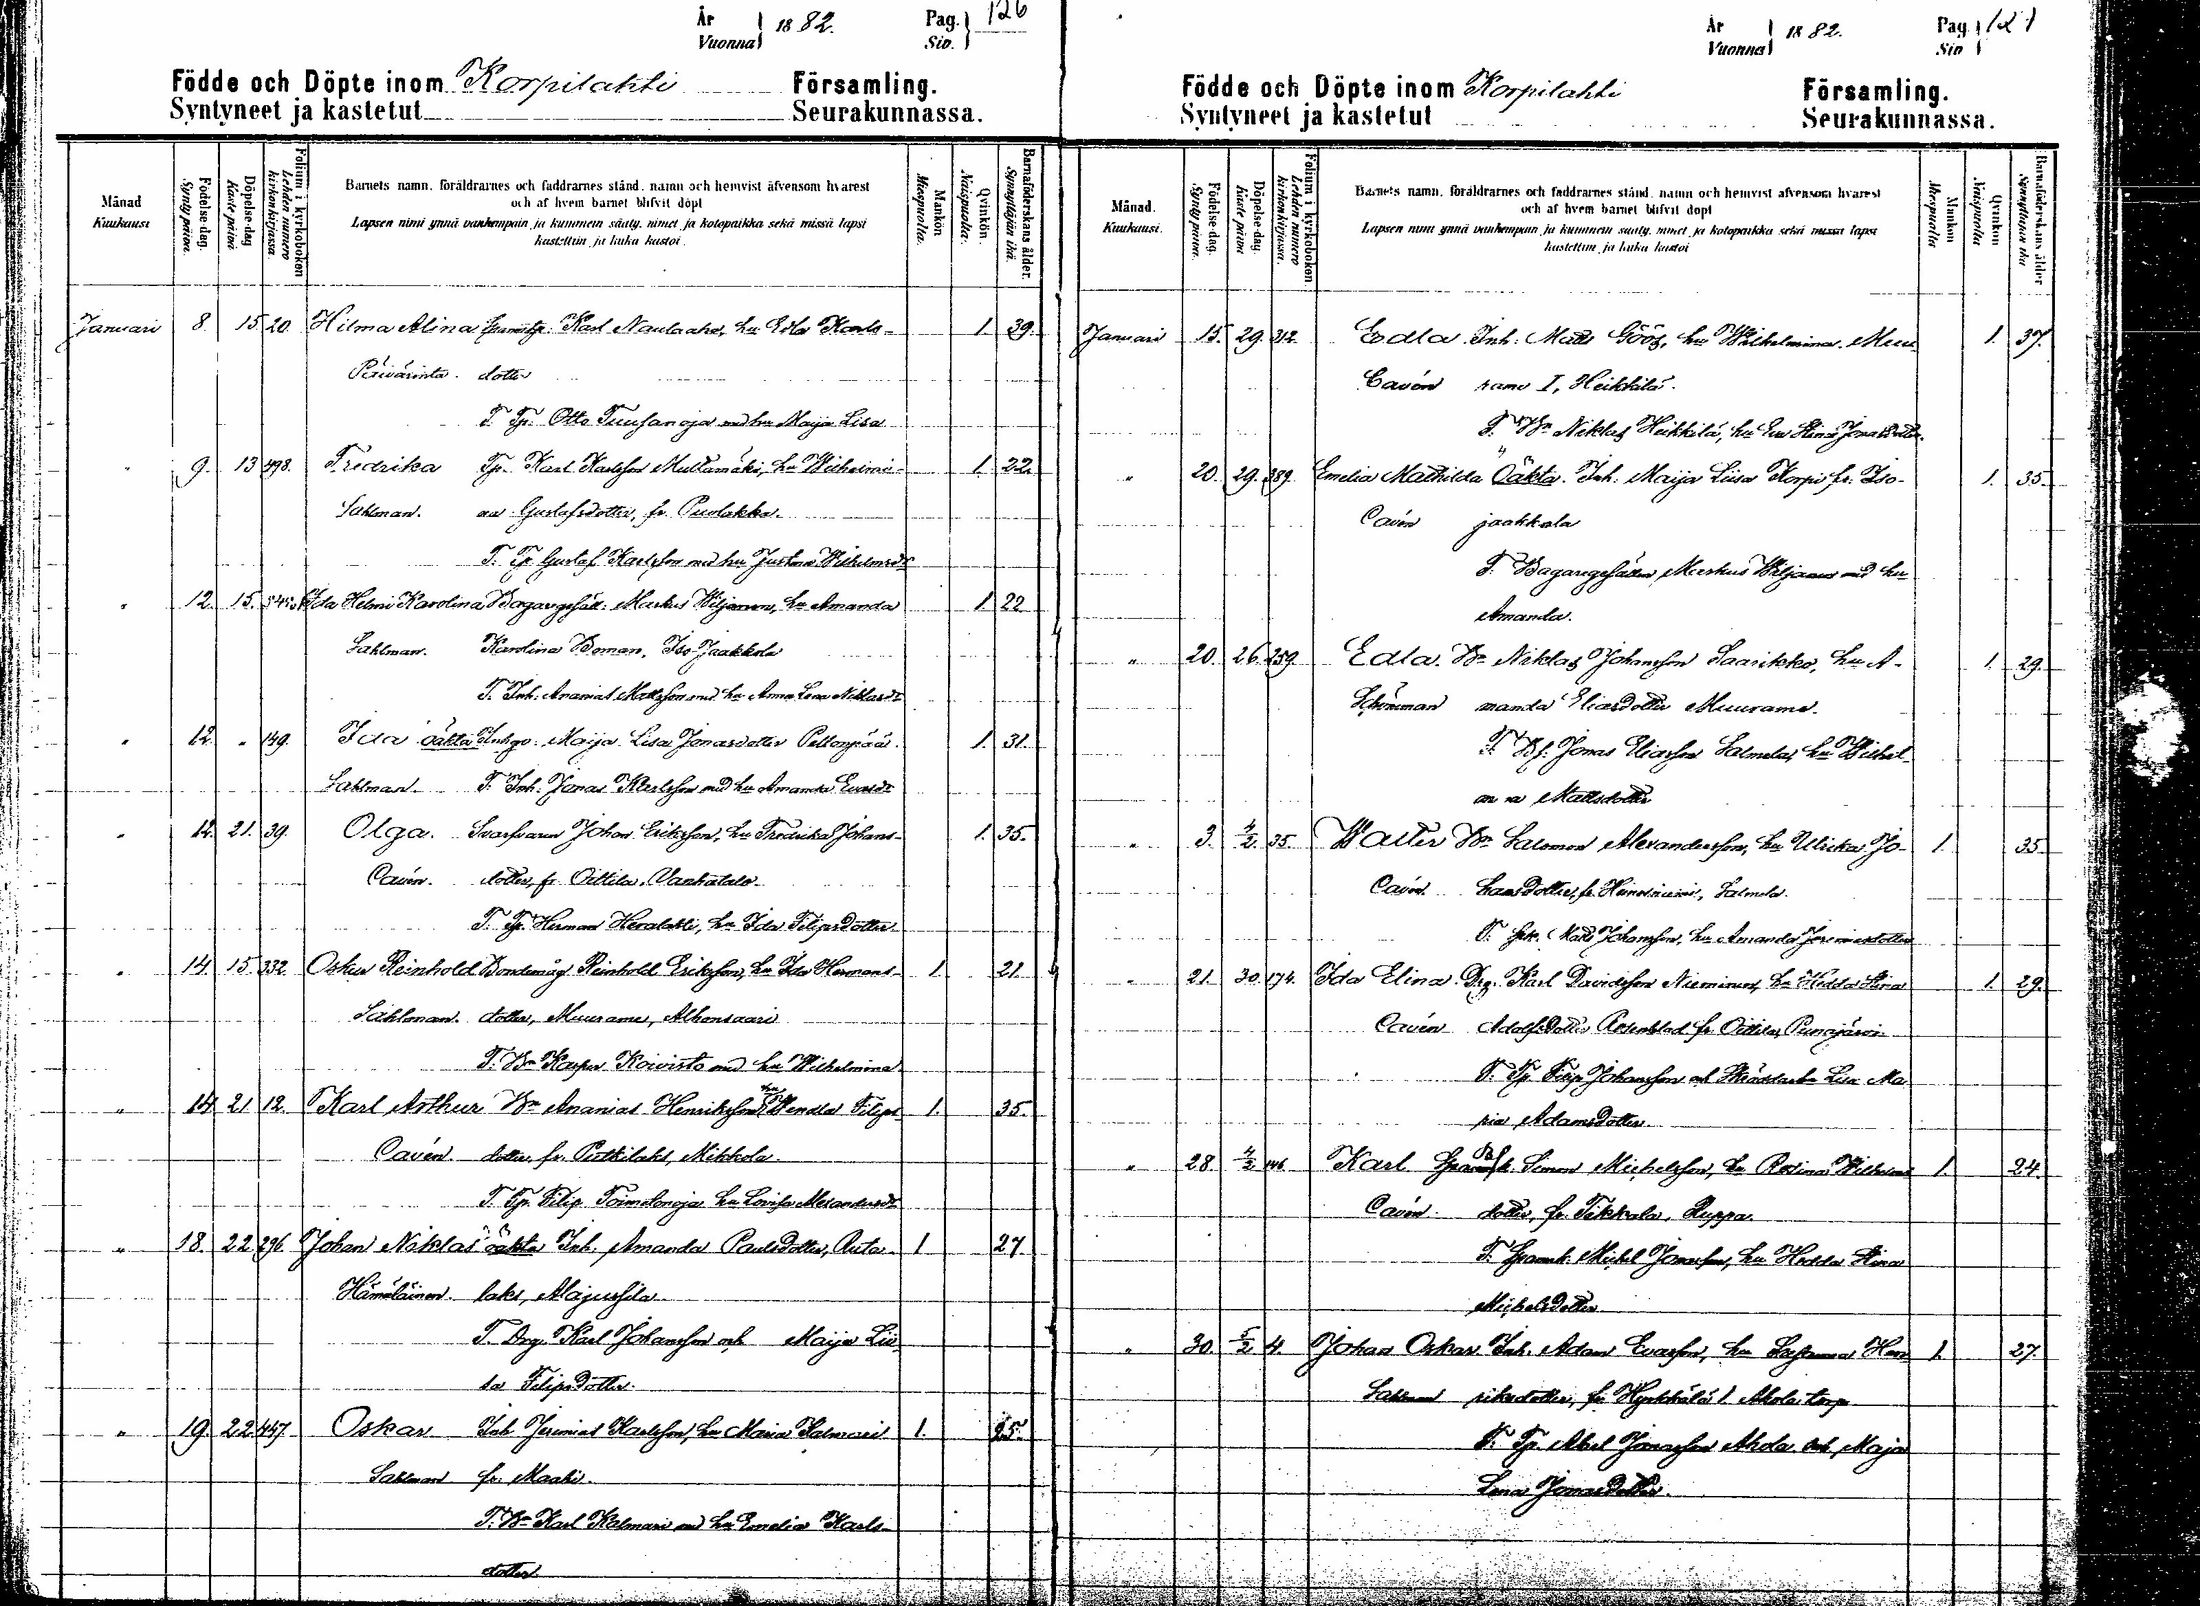 År 1882. Pag. 126
Vuonna Siv.
Födde och Döpte inom Korpilahti Församling.
Syntyneet ja kastetut Seurakunnassa.
Månad Kuukausi
Födelse-dag. Synty päivä.
Döpelse-dag Kaste päivä
Folium i kyrkoboken Lehden numero kirkonkirjassa.
Barnets namn, föräldrarnes och faddrarnes stånd, namn och hemvist äfvensom hvarest
och af hvem barnet blifvit döpt
Lapsen nimi ynnä vanhempain ja kummein sääty, nimet ja kotopaikka sekä missä lapsi
kastettiin ja kuka kastoi.
Mankön Miespuolta.
Qvinkön. Naispuolta.
Barnaföderskans ålder. Synnyttäjän ikä.
Januari 8. 15. 20. Hilma Alina Karl Naulaaho, hu Edla Karls- 1. 39.
Päivärinta. dotter
T. Tp. Otto Tuusanoja med hu Maija Lisa
" 9. 13 498. Fredrika Tp. Karl Karlsson Multamäki, hu Wilhelmi- 1. 22.
Sahlman. na Gustafsdotter, fr. Puolakka.
T. Tp Gustaf Karlsson med hu Justina Wilhelmsdr
" 12. 15. Ida Helmi Karolina Bagaregesäll. Markus Wiljanen, hu Amanda 1 22
Sahlman. Karolina Boman, Iso Jaakkola
T. Inh. Ananias Mattsson med hu Anna Lena Niklasdr
" 12. " 149. Ida oäkta Inhys. Maija Lisa Jonasdotter Peltonpää. 1. 31.
Sahlman. T. Inh. Jonas Karlsson med hu Amanda Evasdr
" 12. 21. 39. Olga. Svarfvaren Johan Eriksson, hu Fredrika Johans- 1. 35.
Cavén. dotter, fr Oittila, Vanhatalo
T. Tp. Herman Heralahti, hu Ida Filipsdotter
" 14. 15. 332. Oskar Reinhold Bondemåg Reinhold Eriksson, hu Ida Hermans- 1. 21.
Sahlman. dotter, Muurame, Alhonsaari
T. Bn Kasper Koivisto med hu Wilhelmina
" 14. 21 12. Karl Arthur Bn Ananias Henriksson, hu Wendla Filips- 1. 35.
Cavén. dotter, fr. Putkilaks, Mikkola.
T. Tp. Filip Toimelanoja hu Lovisa Alexandersdr
" 18. 22 296. Johan Niklas oäkta Inh. Amanda Paulsdotter, Ruta- 1 27.
Hämäläinen. laks, Alajussila
T. Drg. Karl Johansson och Maija Lii-
sa Filipsdotter.
" 19. 22 457. Oskar Inh Jeremias Karlsson, hu Maria Kalmari 1. 25.
Sahlman fr. Maahi.
T. Bn Karl Kalmari med hu Emelia Karls-
dotter
År 1882. Pag. 127
Vuonna Siv
Födde och Döpte inom Korpilahti Församling.
Syntyneet ja kastetut Seurakunnassa.
Månad. Kuukausi.
Födelse-dag. Synty päivä.
Döpelse-dag. Kaste päivä
Folium i kyrkoboken Lehden numero kirkonkirjassa.
Barnets namn, föräldrarnes och faddrarnes stånd, namn och hemvist äfvensom hvarest
och af hvem barnet blifvit döpt
Lapsen nimi ynnä vanhempain ja kummein sääty, nimet ja kotopaikka sekä missä lapsi
kastettiin ja kuka kastoi
Mankön Miespuolta
Qvinkön Naispuolta
Barnaföderskans ålder Synnyttäjän ikä
Januari 15. 29. 312. Edla Inh. Matts Göös, hu Wilhelmina, Muu- 1. 37.
Cavén rame I, Heikkilä.
T. Bn Niklas Heikkilä, hu Eva Stina Jonasdotter.
" 20. 29. 389. Emelia Mathilda Oäkta. Inh. Maija Liisa Korpi fr. Iso- 1. 35.
Cavén jaakkola
T. Bagaregesällen Markus Wiljanen med hu
Amanda.
" 20. 26. 259. Edla. Bn Niklas Johansson Saarikko, hu A- 1. 29.
Schönman manda Eliasdotter Muurame.
T. Bs. Jonas Eliasson Salmela, hu Wilhel-
mina Mattsdotter
" 3. 4/2. 35. Walter Bn Salomon Alexandersson, hu Ulrika Jo- 1. 35
Cavén. hansdotter, fr. Heinosniemi, Salmela.
T. Matts Johansson, hu Amanda Jeremiasdotter
" 21. 30. 174. Ida Elina. Drg. Karl Davidsson Nieminen, hu Hedda Stina 1. 29.
Cavén Adolfsdotter Rosenblad fr. Oittila, Punajärvi
T. Tp Filip Johansson och Lisa Ma
ria Adamsdotter
" 28. 4/2 146. Karl Simon Michelsson, hu Rosina Wilhelms 1. 24.
Cavén. dotter, fr. Tikkala, Ruppa.
T. Michel Jonasson, hu Hedda Stina
Michelsdotter
" 30. 5/2 4. Johan Oskar. Inh. Adam Evasson, hu Susanna Hen 1. 27.
Sahlman riksdotter, fr. Hyrkkälä 1 Ahola torp
T. Tp. Abel Jonasson Ahola och Maja
Lena Jonasdotter.